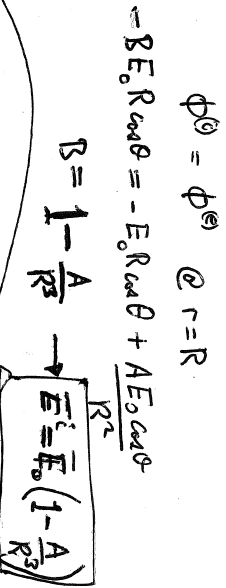 ϕ⁽ⁱ⁾ = ϕ⁽ᵉ⁾ @ r=R
-BE₀Rcosθ = -E₀Rcosθ + AE₀cosθ/R²
B = 1 - A/R³ → E̅ⁱ = E̅₀(1 - A/R³)